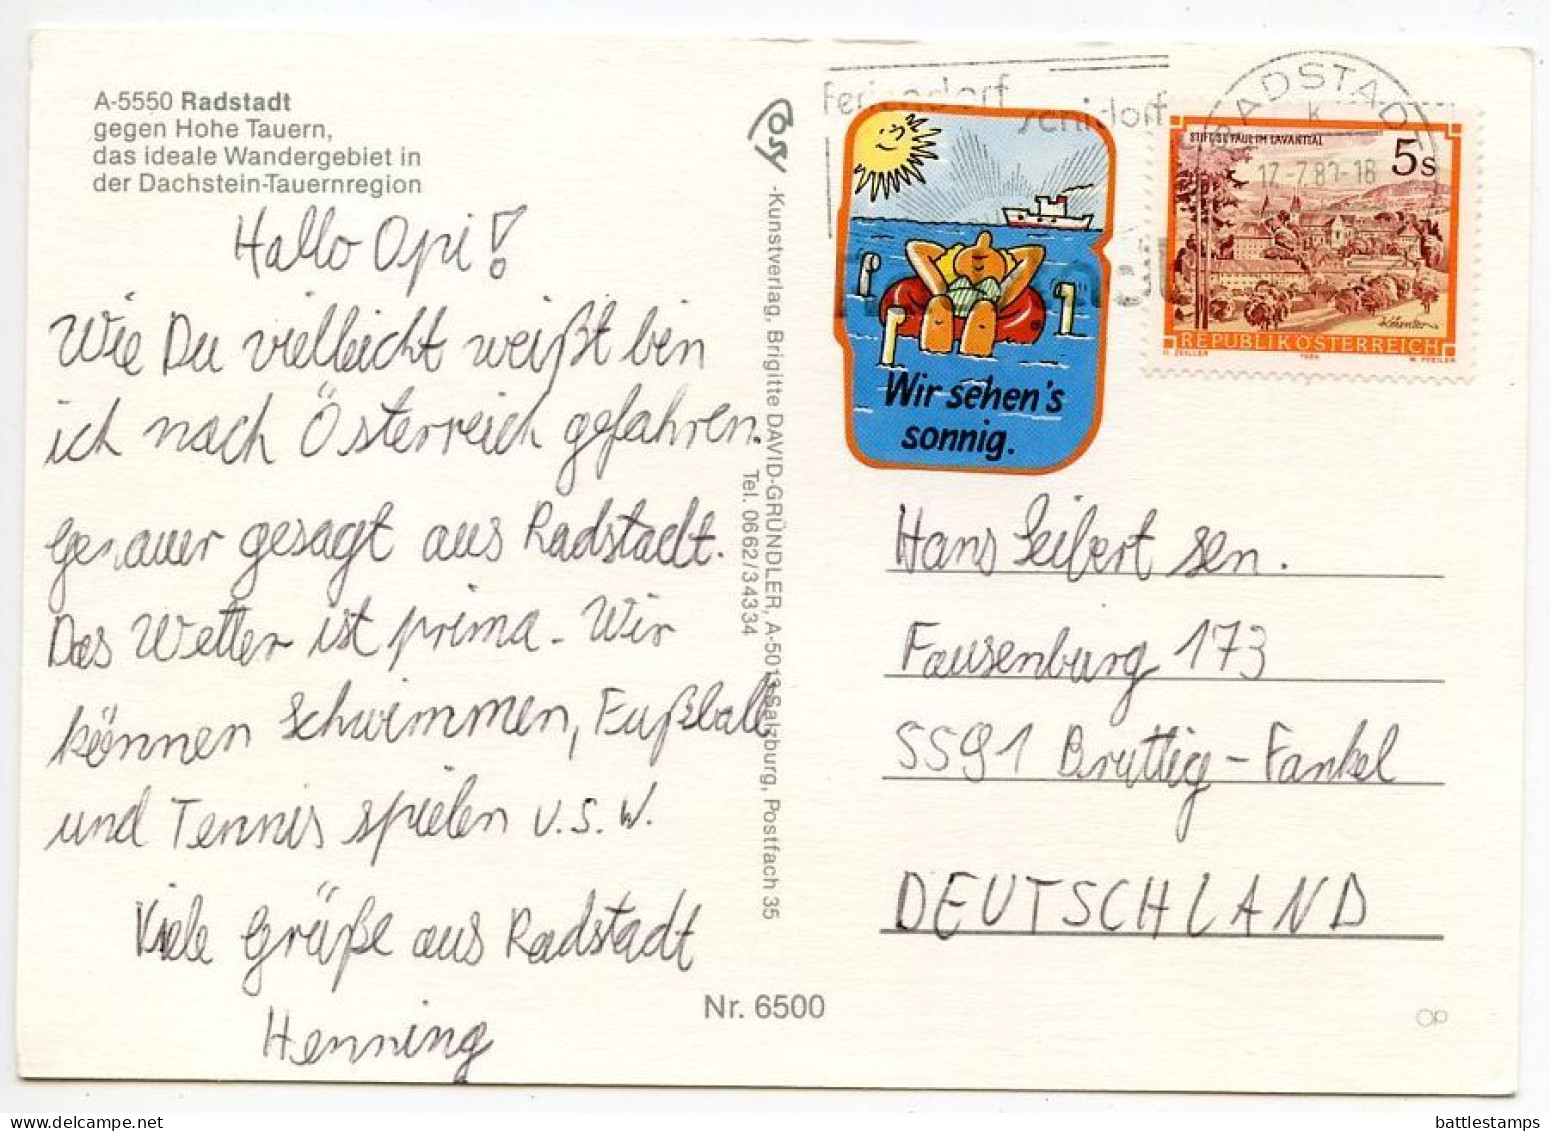 A-5550 Radstadt
gegen Hohe Tauern,
das ideale Wandergebiet in
der Dachstein-Tauernregion
Hallo Opi!
Wie Du vielleicht weißt bin
ich nach Österreich gefahren.
Genauer gesagt aus Radstadt.
Das Wetter ist prima. Wir
können Schwimmen, Fußball
und Tennis spielen u.s.w.
Viele Grüße aus Radstadt
Henning
Cosy
-Kunstverlag, Brigitte DAVID-GRÜNDLER, A-5013 Salzburg, Postfach 35
Tel. 0662/34334
Nr. 6500
Feriendorf
RADSTADT
k
Wir sehen's
sonnig.
STIFT ST. PAUL IM LAVANTTAL
5s
REPUBLIK ÖSTERREICH
O. ZEILLER 1984 W. PFEILER
Hans Seibert sen.
Fausenburg 173
5591 Bruttig-Fankel
DEUTSCHLAND
OP
battlestamps